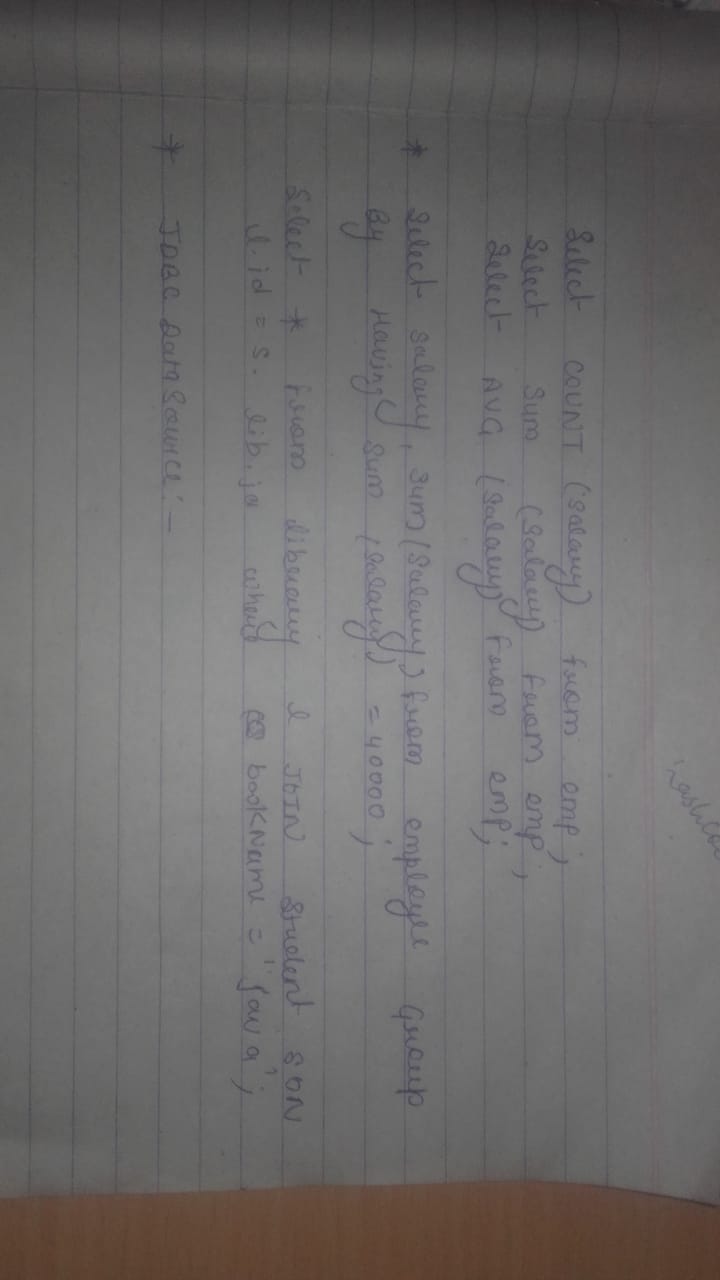 Select COUNT (salary) from emp;
Select sum (salary) from emp;
Select AVG (salary) from emp;
* Select salary, sum (salary) from employee Group
By Having sum (salary) = 40000;
Select * from library l JOIN Student S ON
l.id = s. lib.id where bookName = "java";
* JDBC DataSource:-